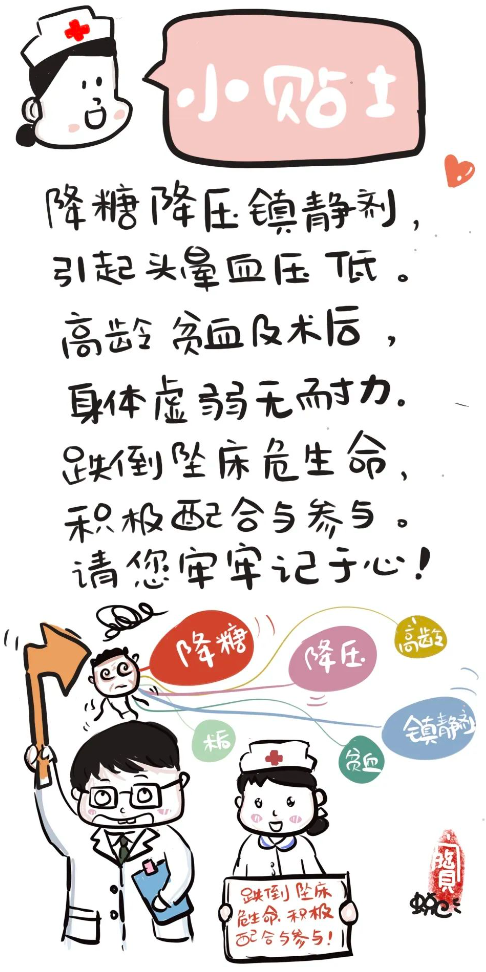 小贴士
降糖降压镇静剂，
引起头晕血压低。
高龄贫血及术后，
身体虚弱无耐力。
跌倒坠床危生命，
积极配合与参与。
请您牢牢记于心！
降糖
降压
高龄
镇静剂
术后
贫血
跌倒坠床
危生命，积极
配合与参与！